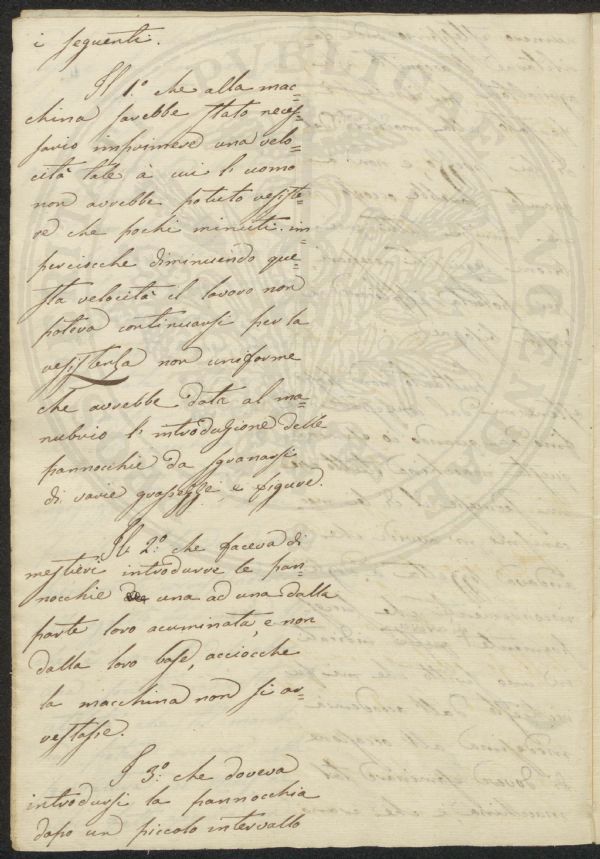 i seguenti.
Il 1.º che alla mac=
china sarebbe stato neces=
sario imprimere una velo=
cità tale à cui l'uomo
non avrebbe potuto resiste=
re che pochi minuti. im
perciocche diminuendo que=
sta velocità il lavoro non
poteva continuarsi per la
resistenza non uniforme
che avrebbe data al ma=
nubrio l'introduzione delle
pannocchie da sgranarsi
di varie grossezze e figure.
Il 2.º che faceva di
mestieri introdurre le pan=
nocchie una ad una dalla
parte loro acuminata, e non
dalla loro base, acciocche
la macchina non si ar=
restasse.
I 3.º che doveva
introdursi la pannocchia
dopo un piccolo intervallo